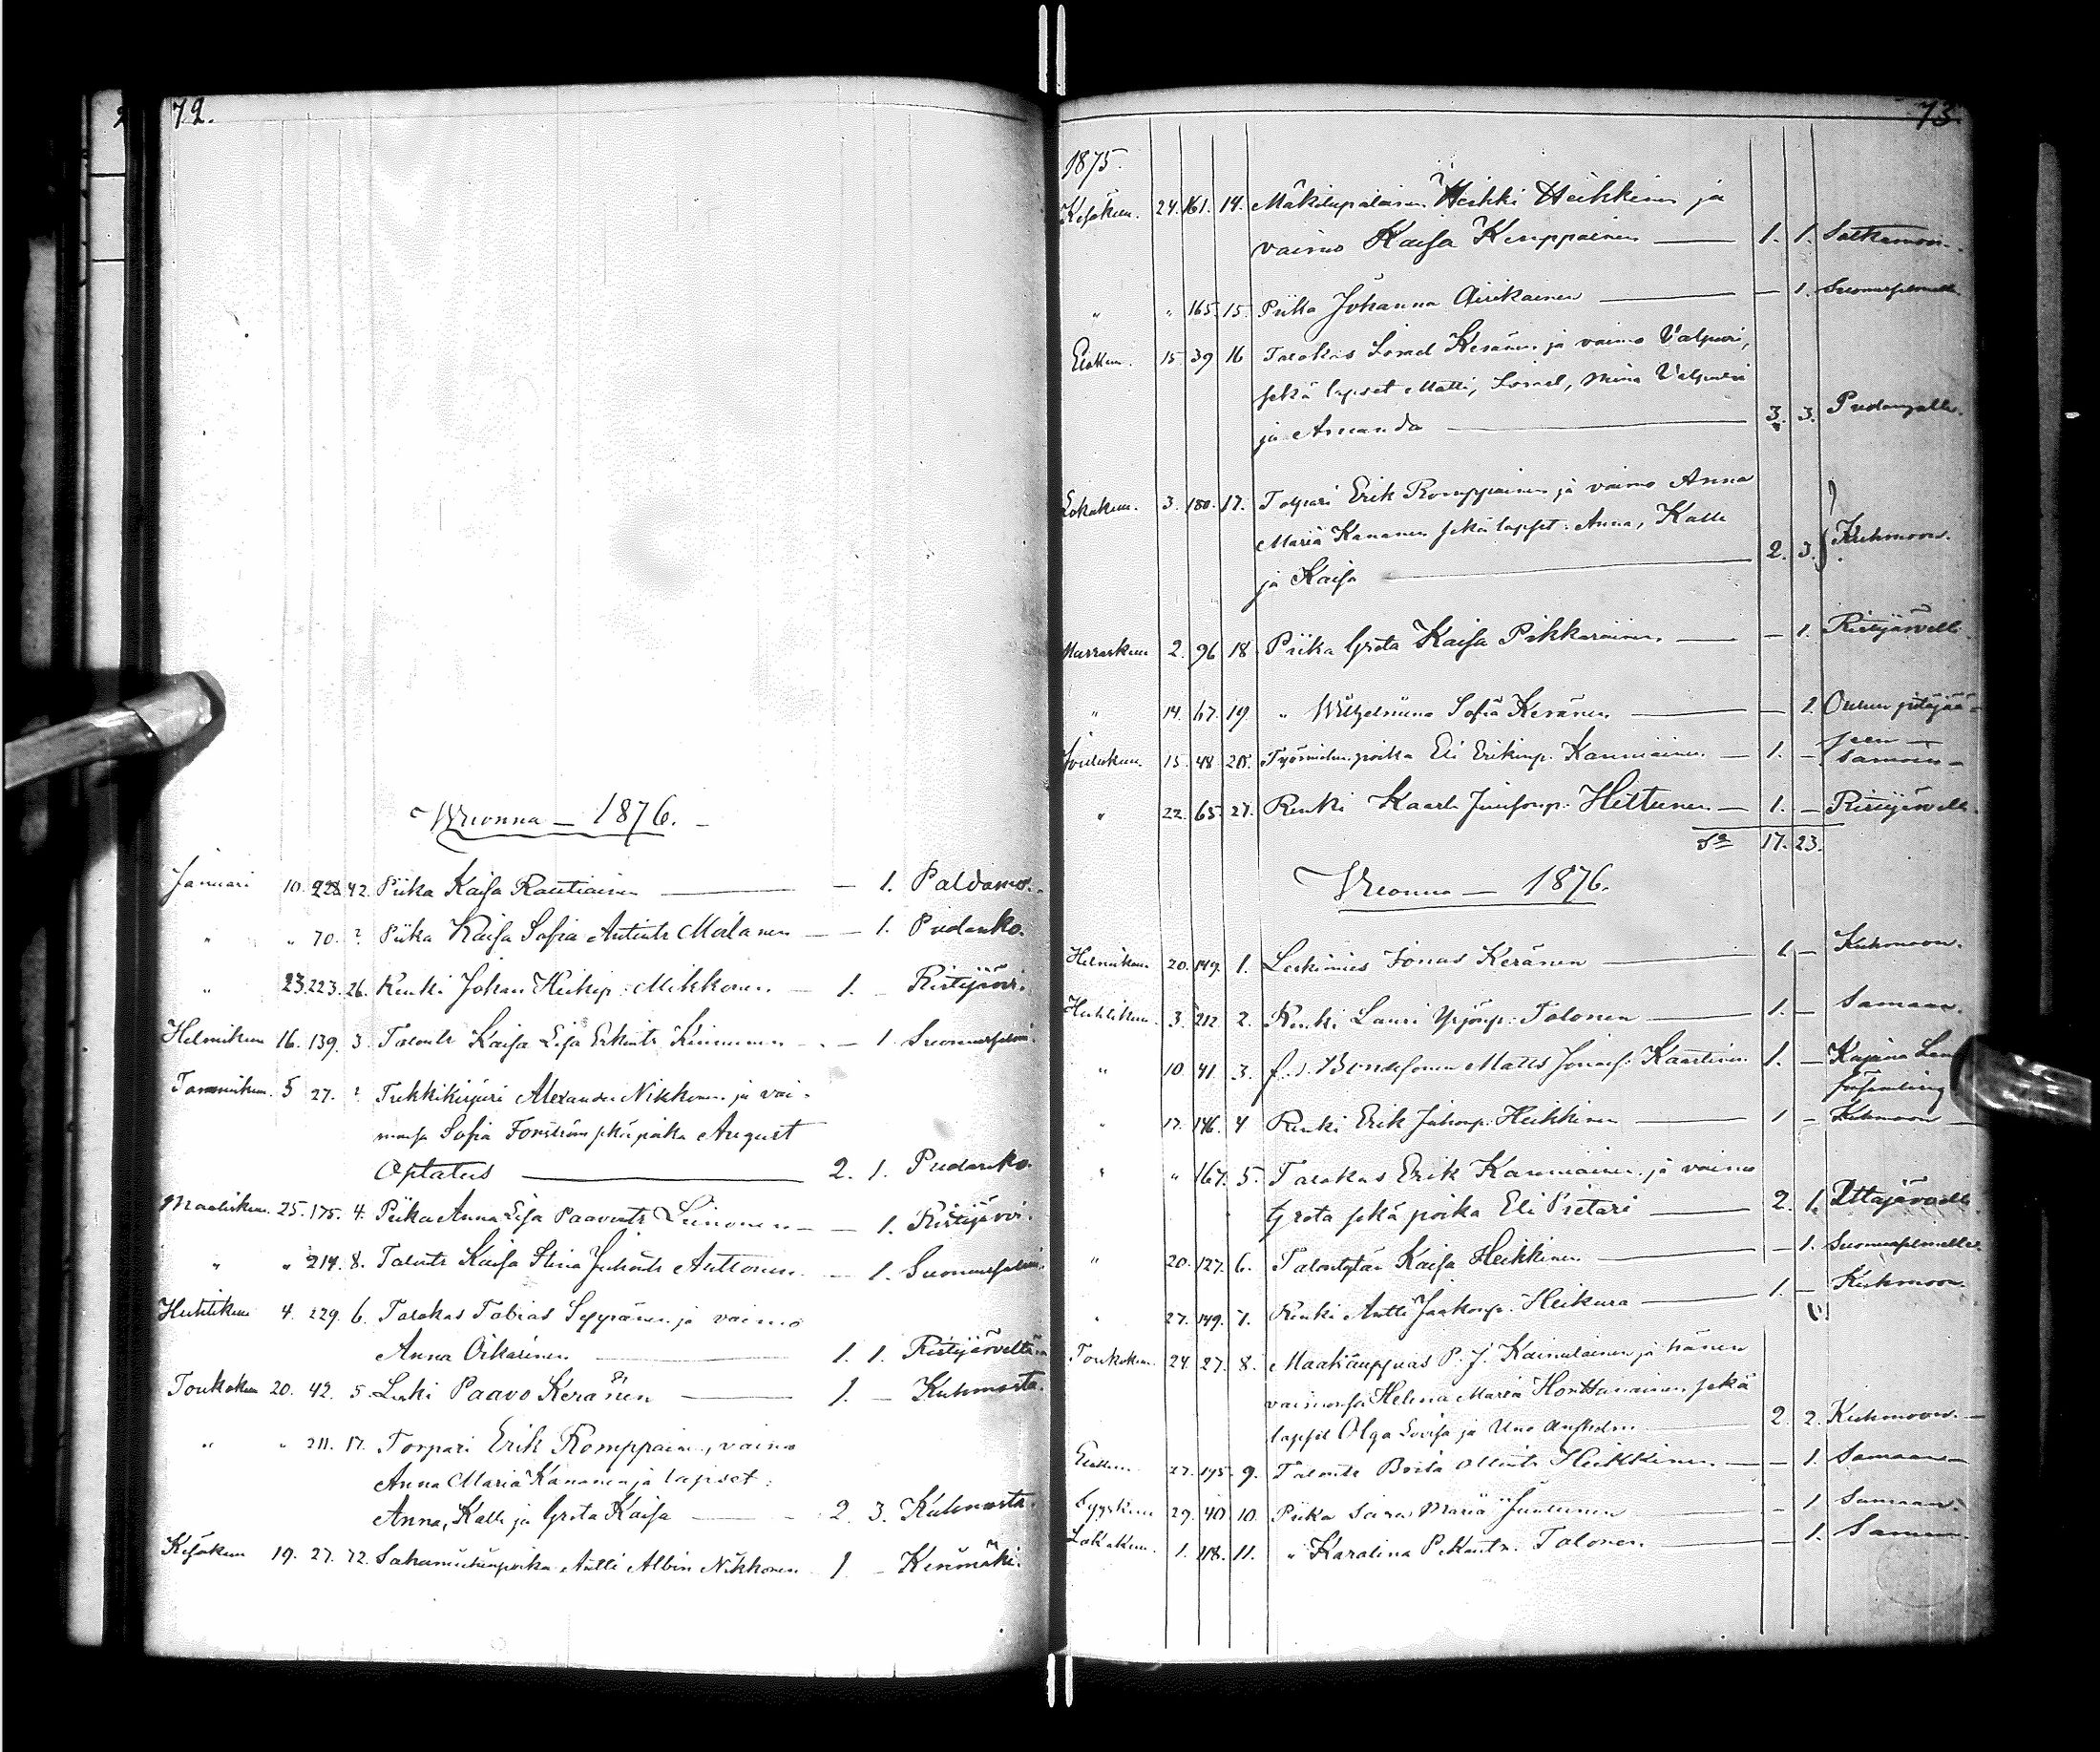 72.
Wuonna – 1876. –
Januari 10. 228. 42. Piika Kaisa Rautiainen — — 1. Paldamo.
" " 70. ? Piika Kaisa Sofia Antintr Moilanen — — 1. Pudasko.
" 23. 223. 26. Renki Johan Heikinp. Mikkonen — 1. – Ristijärvi.
Helmikuu 16. 139. 3. Talontr Kaisa Lisa Erkintr Kinnunen — — 1. Suomussalmi.
Tammikuu. 5 27. ? Trekkikirjuri Alexander Nikkonen ja vai-
monsa Sofia Forström sekä poika August
Optatus — 2. 1. Pudasko.
Maalisku. 25. 175. 4. Piika Anna Lisa Paavontr Leinonen — — 1. Ristijärvi.
" " 214. 8. Talontr Kaisa Stina Juhontr Anttonen — 1. Suomussalmi.
Huhtikuu 4. 229. 6. Talokas Tobias Seppänen ja vaimo
Anna Oikarinen — 1. 1. Ristijärveltä
Toukokuu 20. 42. 5. Leski Paavo Keränen — 1. – Kuhmosta.
" " 211. 17. Torpari Erik Romppain., vaimo
Anna Maria Kananen ja lapset:
Anna, Kalle ja Greta Kaisa — 2. 3. Kuhmosta.
Kesäkuu 19. 27. 72. Antti Albin Nikkonen 1. – Kerimäki.
73.
1875.
Kesäkuu. 24. 161. 14. Mäkitupalainen Heikki Heikkinen ja
vaimo Kaisa Kemppainen — 1. 1. Sotkamoon.
" " 165. 15. Piika Johanna Airikainen — — 1. Suomussalmelle
Elokuu. 15 39 16 Talokas Israel Keränen ja vaimo Valpuri,
sekä lapset Matti, Israel, Miina Valpuri
ja Amanda — 3. 3. Pudasjalle.
Lokakuu. 3. 180. 17. Torpari Erik Romppainen ja vaimo Anna
Maria Kananen sekä lapset: Anna, Kalle
ja Kaisa — 2. 3. Kuhmoon.
Marraskuu 2. 96 18 Piika Greta Kaisa Pikkarainen — — 1. Ristijärvelle
" 14. 67. 19 " Wilhelmiina Sofia Keränen — — 1. Oulun pitäjää-
seen —
Joulukuu. 15. 48 20. Työmiehen poika Eli Erikinp. Karmiainen — 1. – Samoin –
" 22. 65. 21. Renki Kaarle Juhonp. Hiltunen — 1. – Ristijärvelle.
Sa 17. 23.
Wuonna — 1876.
Helmikuu 20. 149. 1. Leskimies Jonas Keränen — 1 – Kuhmoon.
Huhtikuu. 3. 212. 2. Renki Lauri Yrjönp. Talonen — 1. – Samaan.
" 10 41. 3. f.d. Bondesonen Matts Jonass. Kaartinen 1. – Kajana Lan
församling
" 17. 146. 4 Renki Erik Juhonp. Heikkinen — 1 – Kuhmoon —
" " 167. 5. Talokas Erik Karmiainen ja vaimo
Greta sekä poika Eli Pietari — 2. 1. Uttajärvelle.
" 20. 127. 6. Talontytär Kaisa Heikkinen — – 1. Suomussalmelle.
" 27. 149. 7. Renki Antti Jaakonp. Heikura — 1. – Kuhmoon.
Toukokuu. 24. 27. 8. Maakauppias P. J. Kainulainen ja hänen
vaimonsa Helena Maria Honttanainen sekä
lapset Olga Lovisa ja Uno Anshelm — 2. 2. Kuhmoon. —
Elokuu. 27. 195. 9. Talontr Brita Ollintr Heikkinen — – 1. Samaan —
Syyskuu 29. 40 10. Piika Saara Maria Juntunen — – 1 Samaan.
Lokakuu. 1. 48. 11. " Karolina Pekantr. Talonen. — – 1. Samaan.